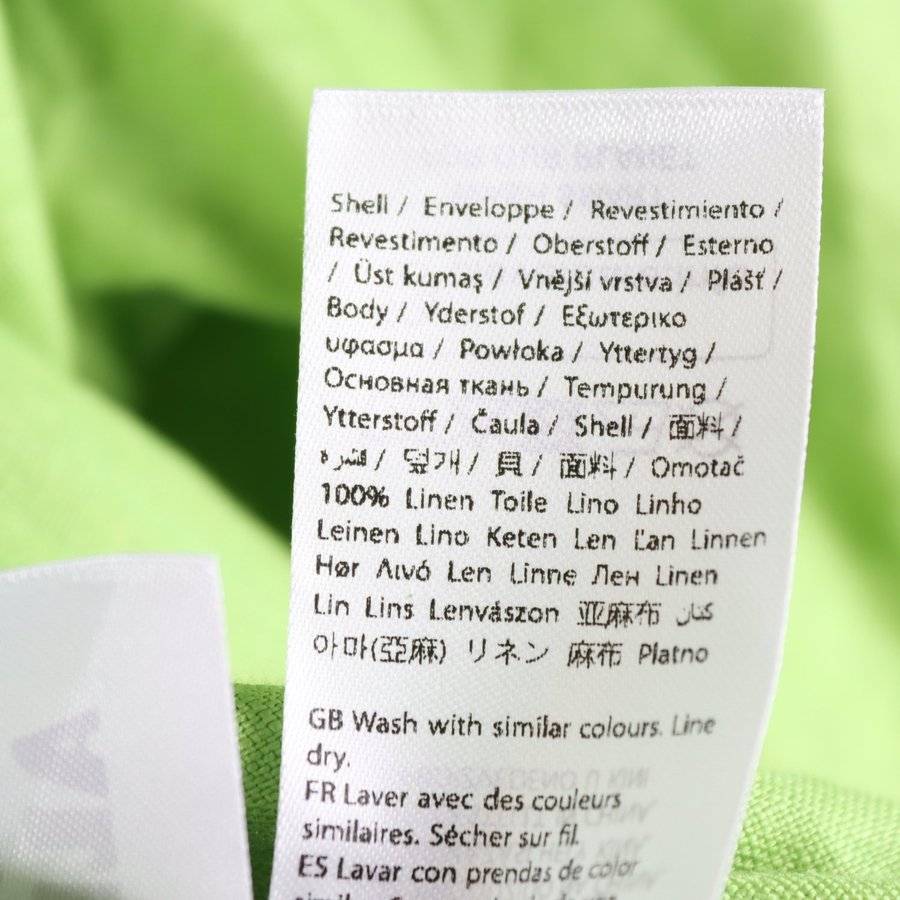 Shell / Enveloppe / Revestimiento /
Revestimento / Oberstoff / Esterno
/ Üst kumaş / Vnější vrstva / Plášť /
Body / Yderstof / Εξωτερικο
υφασμα / Powłoka / Yttertyg /
Основная ткань / Tempurung /
Ytterstoff / Čaula / Shell / 面料 /
قشره / 덮개 / 貝 / 面料 / Omotač
100% Linen Toile Lino Linho
Leinen Lino Keten Len Ľan Linnen
Hør Λινό Len Linne Лен Linen
Lin Lins Lenvászon 亚麻布 كتان
아마(亞麻) リネン 麻布 Platno
GB Wash with similar colours. Line
dry.
FR Laver avec des couleurs
similaires. Sécher sur fil.
ES Lavar con prendas de color